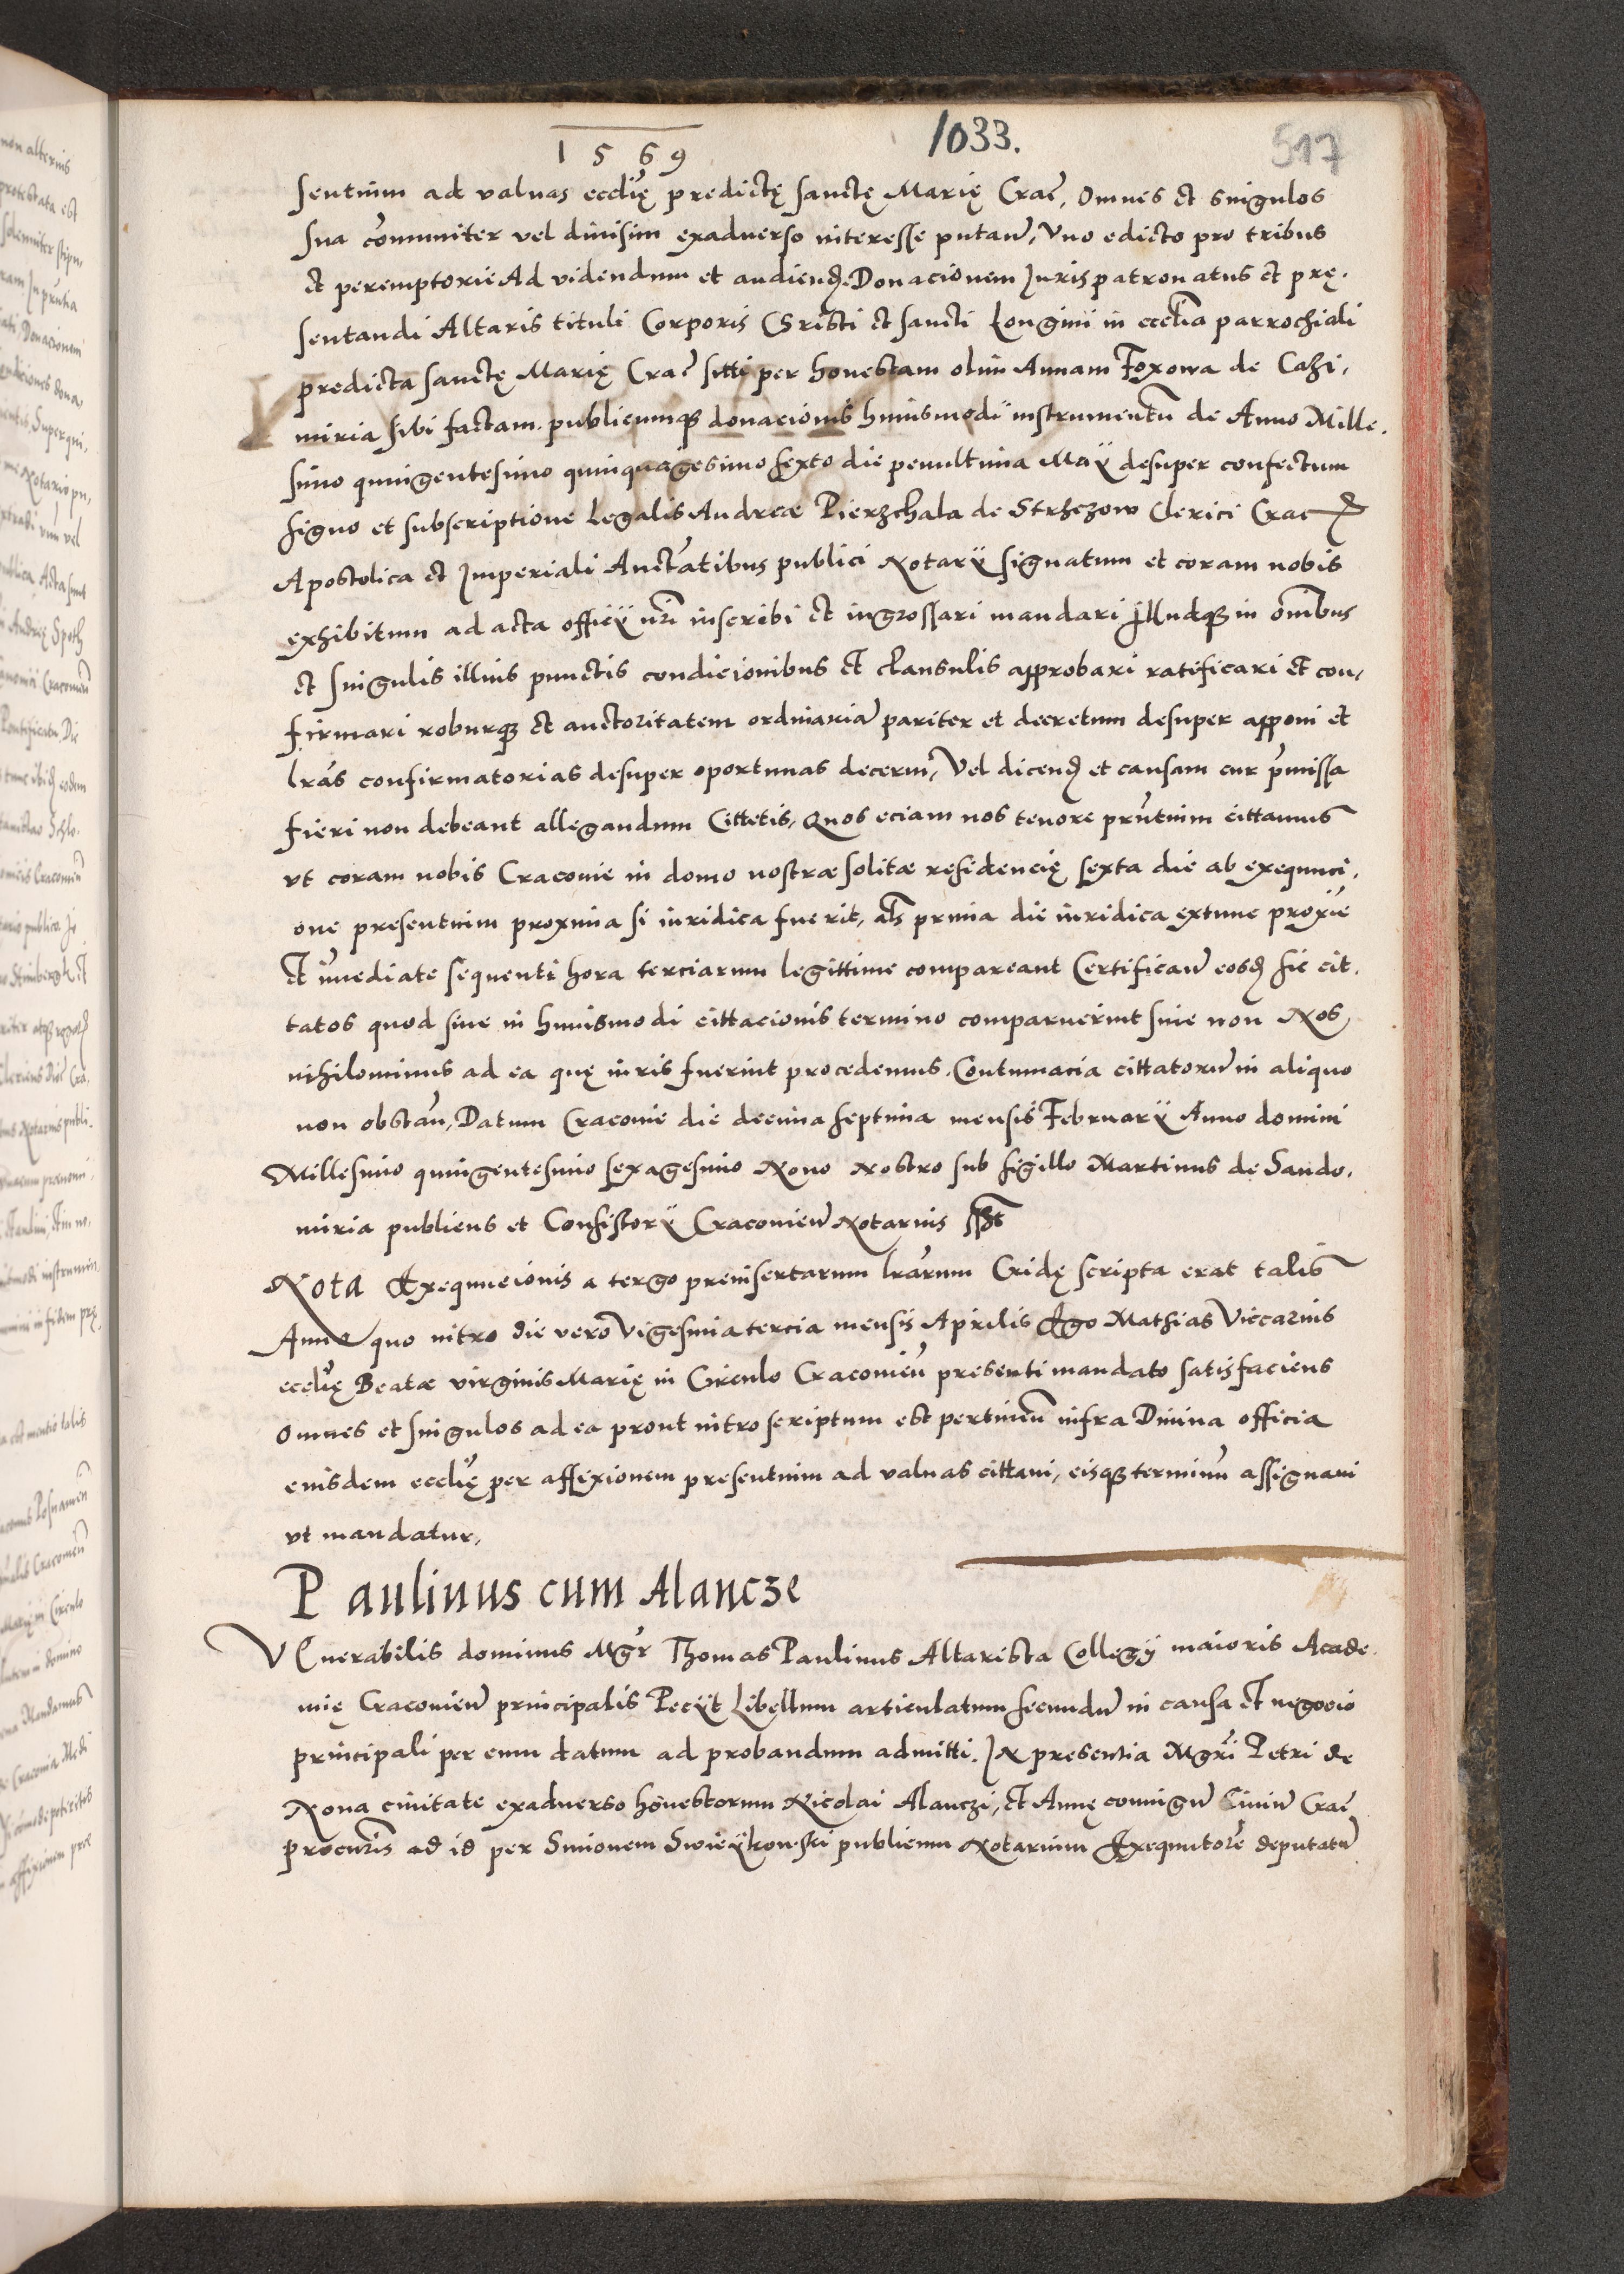 1569
1033.
517
sentium ad valvas ecclię predictę sanctę Marię Crac, Omnes et singulos
sua comuniter vel divisim exadverso interesse putan, Uno edicto pro tribus
et peremptorie Ad videndum et audiend Donacionem Juris patronatus et prę-
sentandi Altaris tituli Corporis Christi et sancti Longini in ecclia parrochiali
predicta sanctę Marię Crac sitti per honestam olim Annam Foxowa de Cazi-
miria sibi factam. publicumq donacionis huiusmodi instrumentu de Anno Mille-
simo quingentesimo quinquagesimo sexto die penultima Maij desuper confectum
signo et subscriptione Legalis Andreæ Pierzchala de Strzezow Clerici Crac D
Apostolica et Imperiali Auctatibus publici Notarij signatum et coram nobis
exhibitum ad acta officij nri inscribi et ingrossari mandari, Illudq in omibus
et singulis illius punctis condicionibus et clausulis approbari ratificari et con-
firmari roburq et auctoritatem ordinaria pariter et decretum desuper apponi et
lras confirmatorias desuper oportunas decerni, Vel dicend et causam cur pmissa
fieri non debeant allegandum Cittetis, Quos eciam nos tenore prntium cittamus
ut coram nobis Cracovie in domo nostræ solitæ residencię sexta die ab exequuci-
one presentium proxima si iuridica fuerit, als prima die iuridica extunc proxie
Et imediate sequenti hora terciarum legittime compareant Certifican eosd sic cit-
tatos quod sive in huiusmodi cittacionis termino comparuerint sive non Nos
nihilominus ad ea quę iuris fuerint procedemus. Contumacia cittatoru in aliquo
non obstan, Datum Cracovie die decima septima mensis Februarij Anno domini
Millesimo quingentesimo sexagesimo Nono Nostro sub sigillo Martinus de Sando-
miria publicus et Consistorij Cracovien Notarius sst
Nota Exequucionis a tergo preinsertarum lrarum Cridę scripta erat talis
Anno quo intro die vero Vigesima tercia mensis Aprilis Ego Mathias Viccarius
ecclię Beatæ virginis Marię in Circulo Cracovien presenti mandato satisfaciens
Omnes et singulos ad ea prout intro scriptum est pertinen infra Divina officia
eiusdem ecclię per affixionem presentium ad valvas cittavi, eisq terminu assignavi
ut mandatur,
Paulinus cum Alancze
VEnerabilis dominus Mgr Thomas Paulinus Altarista Collegij maioris Acade-
mię Cracovien principalis Pecijt Libellum articulatum secundu in causa et negocio
principali per eum datum ad probandum admitti. IN presentia Mgri Petri de
Nova civitate exadverso honestorum Nicolai Alanczi, et Annę coniugu Civiu Crac
procuris ad id per Simonem Swieijkowski publicum Notarium Exequutore deputatu